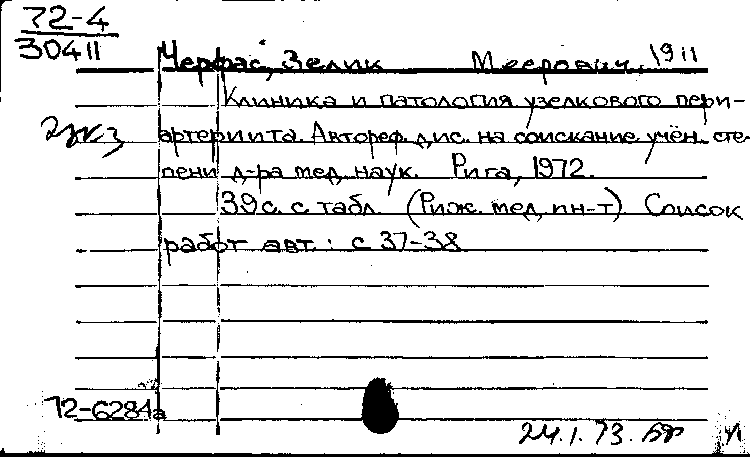 72-4
30411
Черфас, Зелик Меерович, 1911
Клиника и патология узелкового пери-
2 экз артериита. Автореф. дис. на соискание учён. сте-
пени д-ра мед. наук. Рига, 1972.
39 с. с табл. (Риж. мед. ин-т). Список
работ авт.: с 37-38
72-6284а
24.1.73.